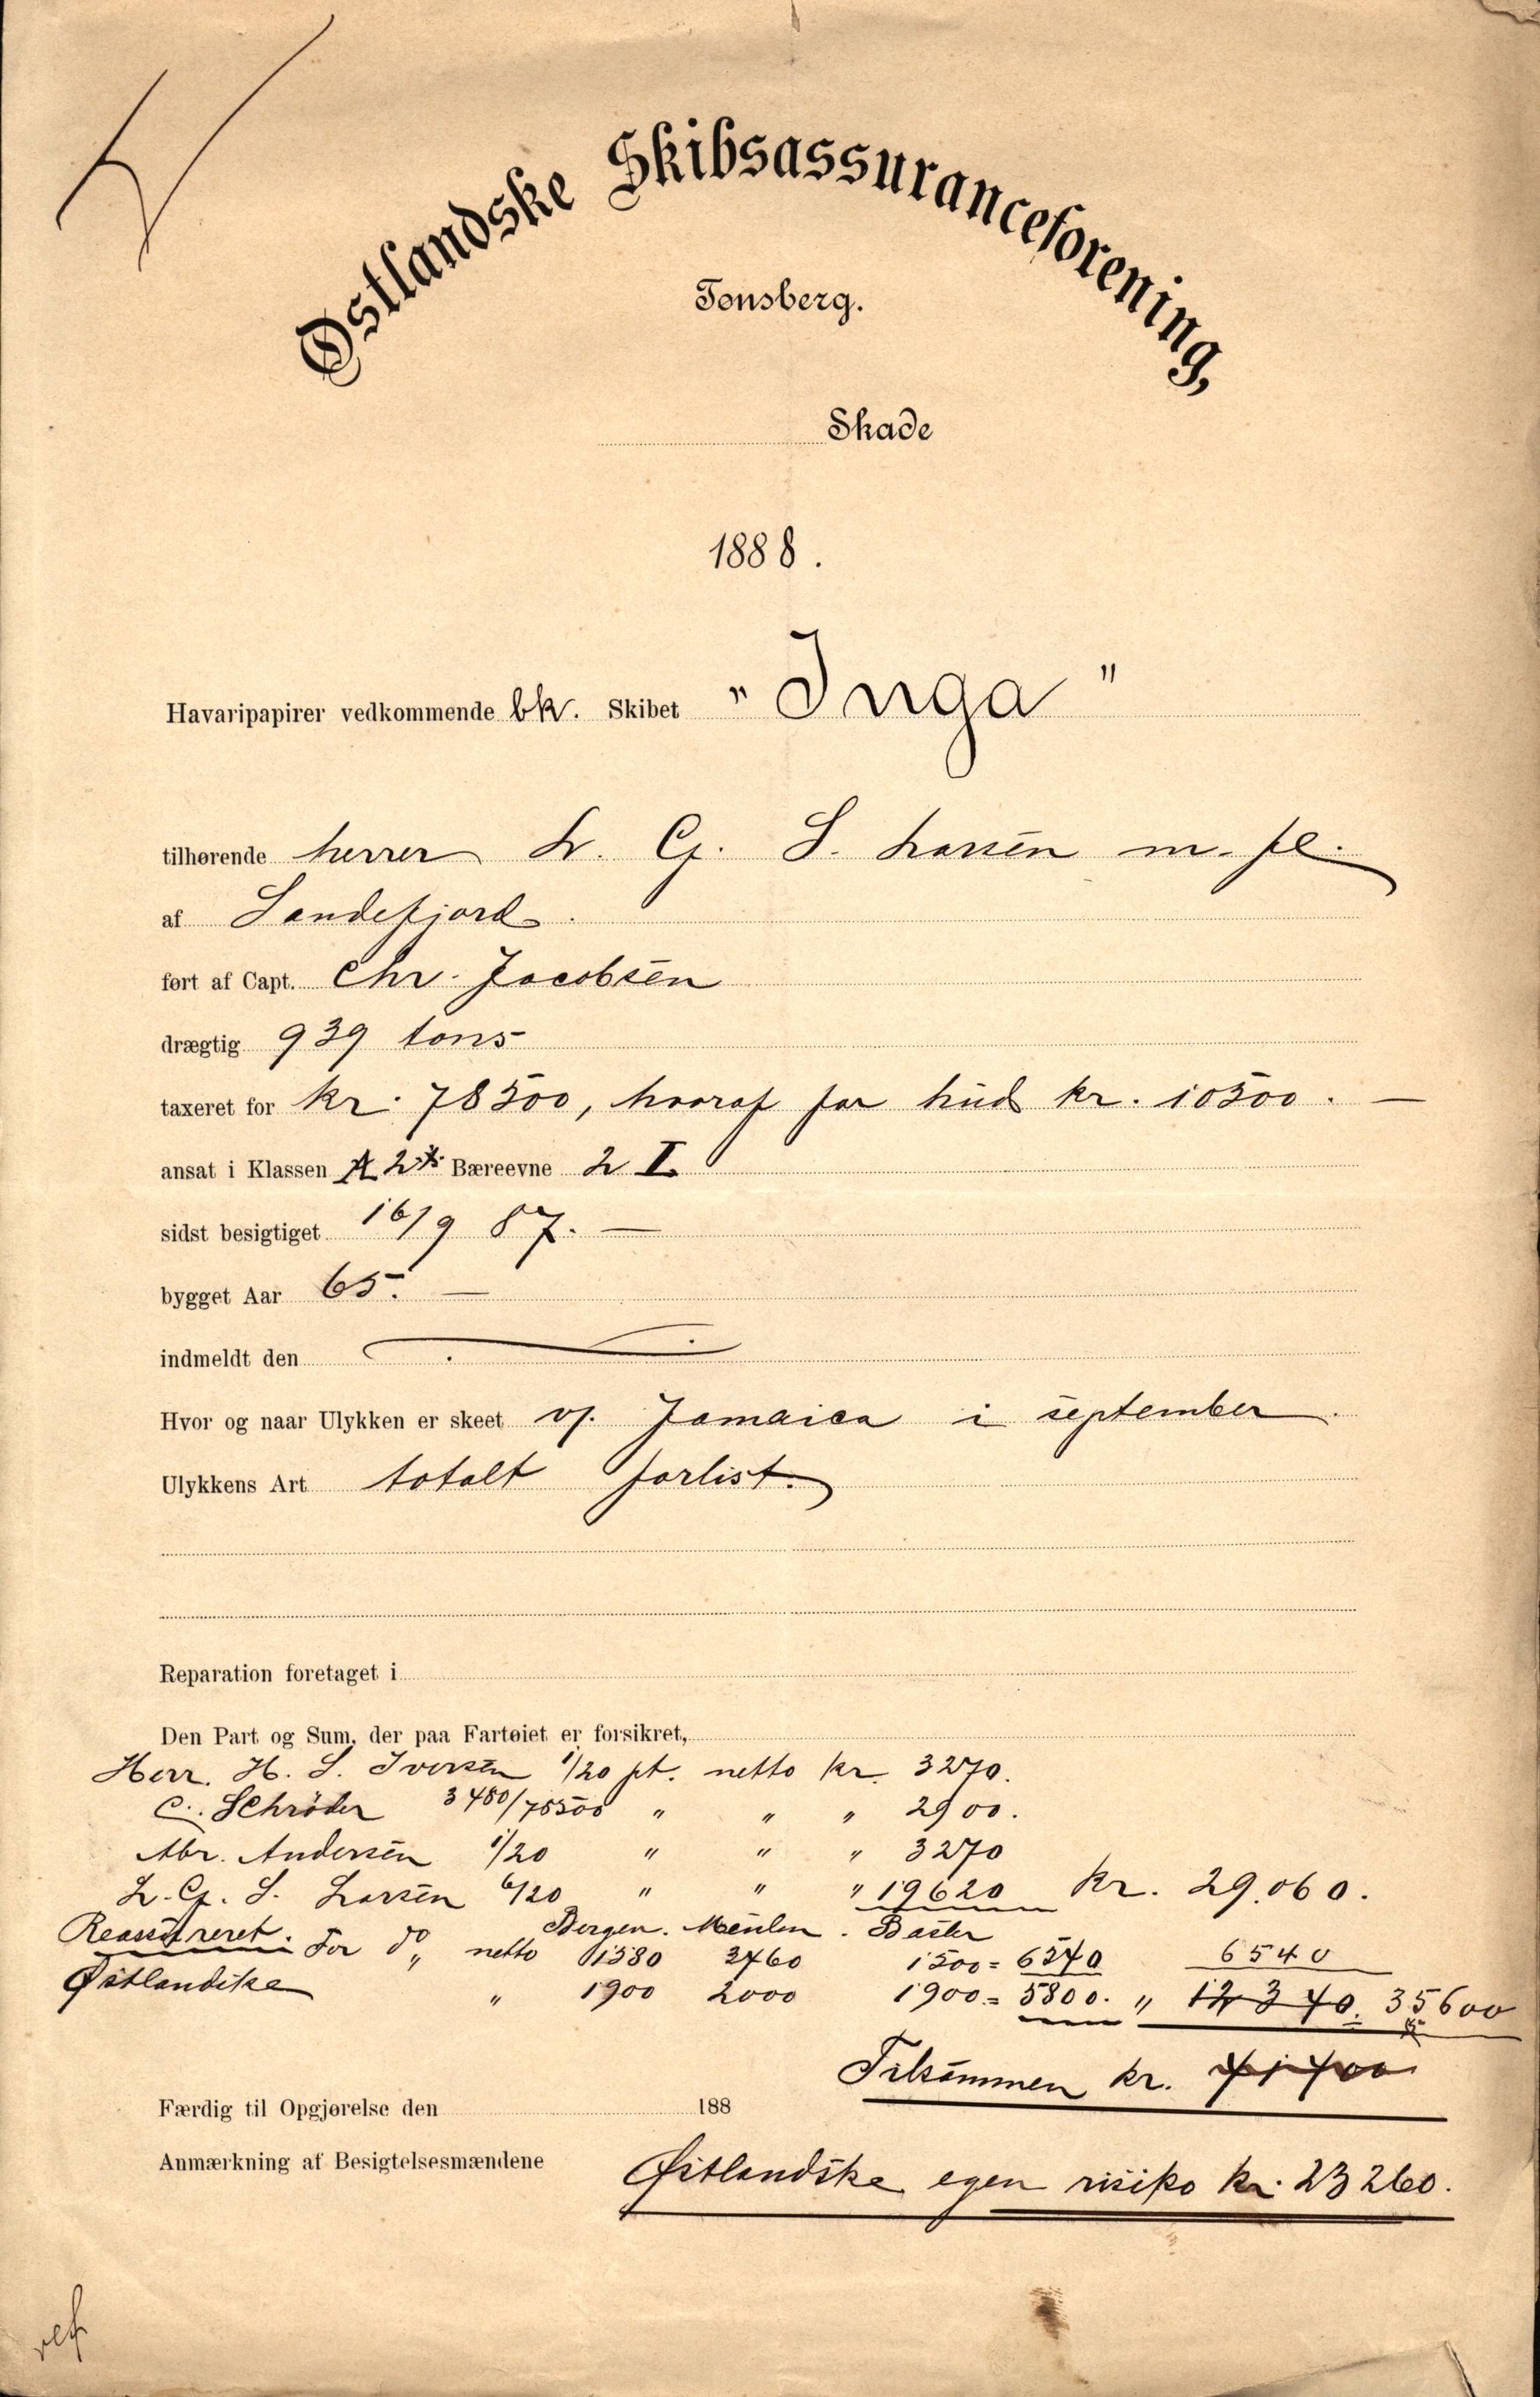 Østlandske Skibsassuranceforening,
Tønsberg.
Skade
1888.
Havaripapirer vedkommende bk. Skibet „Inga"
tilhørende herrer L. G. S. Larsen m. fl.
af Sandefjord.
ført af Capt. Chr. Jacobsen
drægtig 939 tons
taxeret for kr. 78500, hvoraf for hud kr. 10500. —
ansat i Klassen A 2 Bæreevne 2 I
sidst besigtiget 16/9 87. —
bygget Aar 65. —
indmeldt den
Hvor og naar Ulykken er skeet v/. Jamaica i september.
Ulykkens Art totalt forlist.
Reparation foretaget i
Den Part og Sum, der paa Fartøiet er forsikret,
Herr. H. S. Iversen 1/20 pt. netto kr. 3270.
C. Schrøder 3480/78500 " " " 2900.
Abr. Andersen 1/20 " " " 3270
L. G. S. Larsen 6/20 " " " 19620 Kr. 29.060.
Reassureret. Bergen.
For do netto 2460 1500 = 6540 6540
Østlandske " 1900 2000 1900 = 5800. " 12340. 35600
Tilsammen kr. 41400
Færdig til Opgjørelse den 188
Anmærkning af Besigtelsesmændene
Østlandske egen risiko kr. 23260.